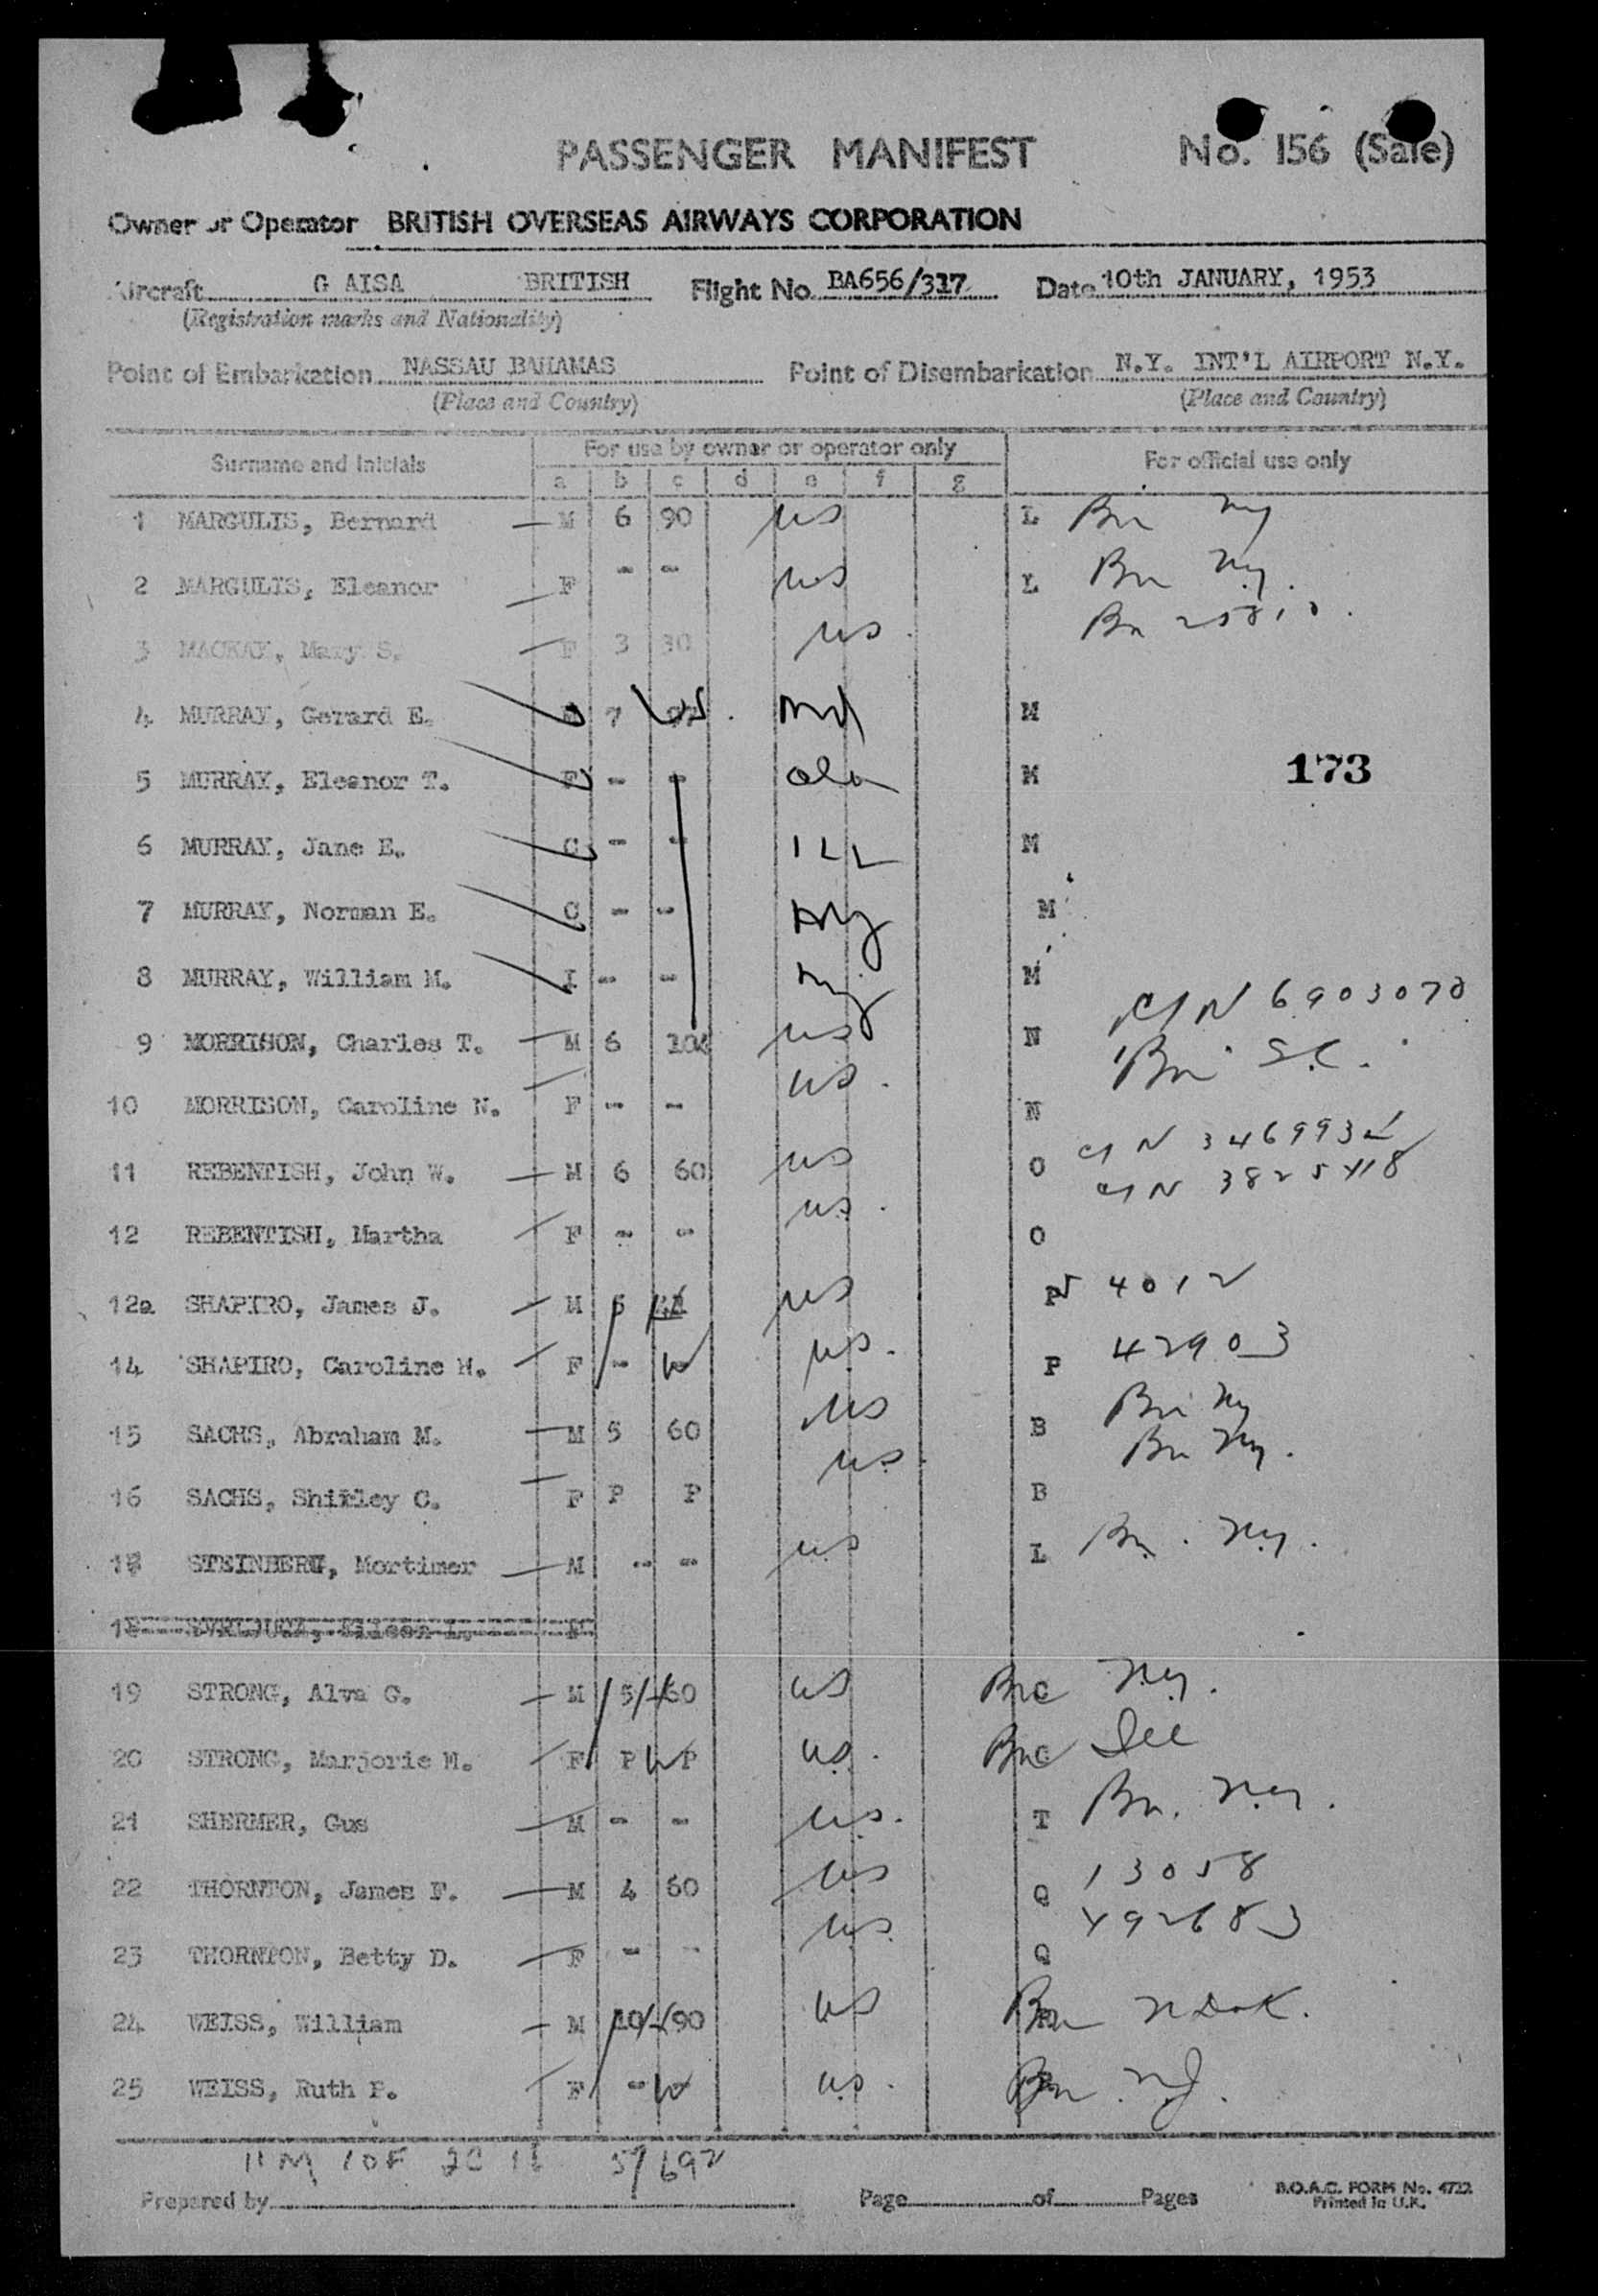 PASSENGER MANIFEST No. 156 (Sale)
Owner or Operator BRITISH OVERSEAS AIRWAYS CORPORATION
Aircraft G AISA BRITISH Flight No. BA656/317 Date 10th JANUARY, 1953
(Registration marks and Nationality)
Point of Embarkation NASSAU BAHAMAS Point of Disembarkation N.Y. INT'L AIRPORT N.Y.
(Place and Country) (Place and Country)
Surname and Initials For use by owner or operator only For official use only
a b c d e f g
1 MARGULIS, Bernard M 6 90 us L Bn ny
2 MARGULIS, Eleanor F - - us L Bn ny.
3 MACKAY, Mary S. F 3 30 us. Bn
4 MURRAY, Gerard E. 7 M
5 MURRAY, Eleanor T. F - - M
173
6 MURRAY, Jane E. C - - ILL M
7 MURRAY, Norman E. C - - M
8 MURRAY, William M. I - - M
9 MORRISON, Charles T. M 6 us N C/N 6903070
10 MORRISON, Caroline N. F - - us. N Bn S.C.
11 REBENTISH, John W. M 6 60 us O C/N
12 REBENTISH, Martha F - - us. O C/N
12a SHAPIRO, James J. M 5 us P 4012
14 SHAPIRO, Caroline H. F - us. P 42903
15 SACHS, Abraham M. M 5 60 us B Bn ny
16 SACHS, Shirley C. F P P us. B Bn ny.
STEINBERG, Mortimer M - - us L Bn. ny.
19 STRONG, Alva G. M 5 60 us C Bn ny.
20 STRONG, Marjorie M. F P P us. C Bn
21 SHERMER, Gus M - - us. T Bn. ny.
22 THORNTON, James F. M 4 60 us Q 13058
23 THORNTON, Betty D. F - - us. Q 492683
24 WEISS, William M 10 90 us Bn N Dak.
25 WEISS, Ruth P. F - - us. Bn N.J.
11M 10F 2C 1I 57/692
Prepared by Page of Pages
B.O.A.C. FORM No. 4722
Printed in U.K.